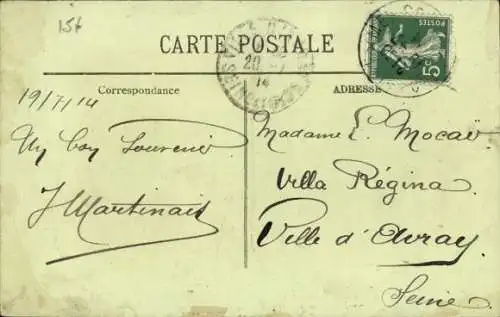 156
CARTE POSTALE
Correspondance
ADRESSE
POSTES
5c
20
14
19/7/14
My Boy Souvenir
J Martinais
Madame E. Mocaë
Villa Régina
Ville d'Avray
Seine